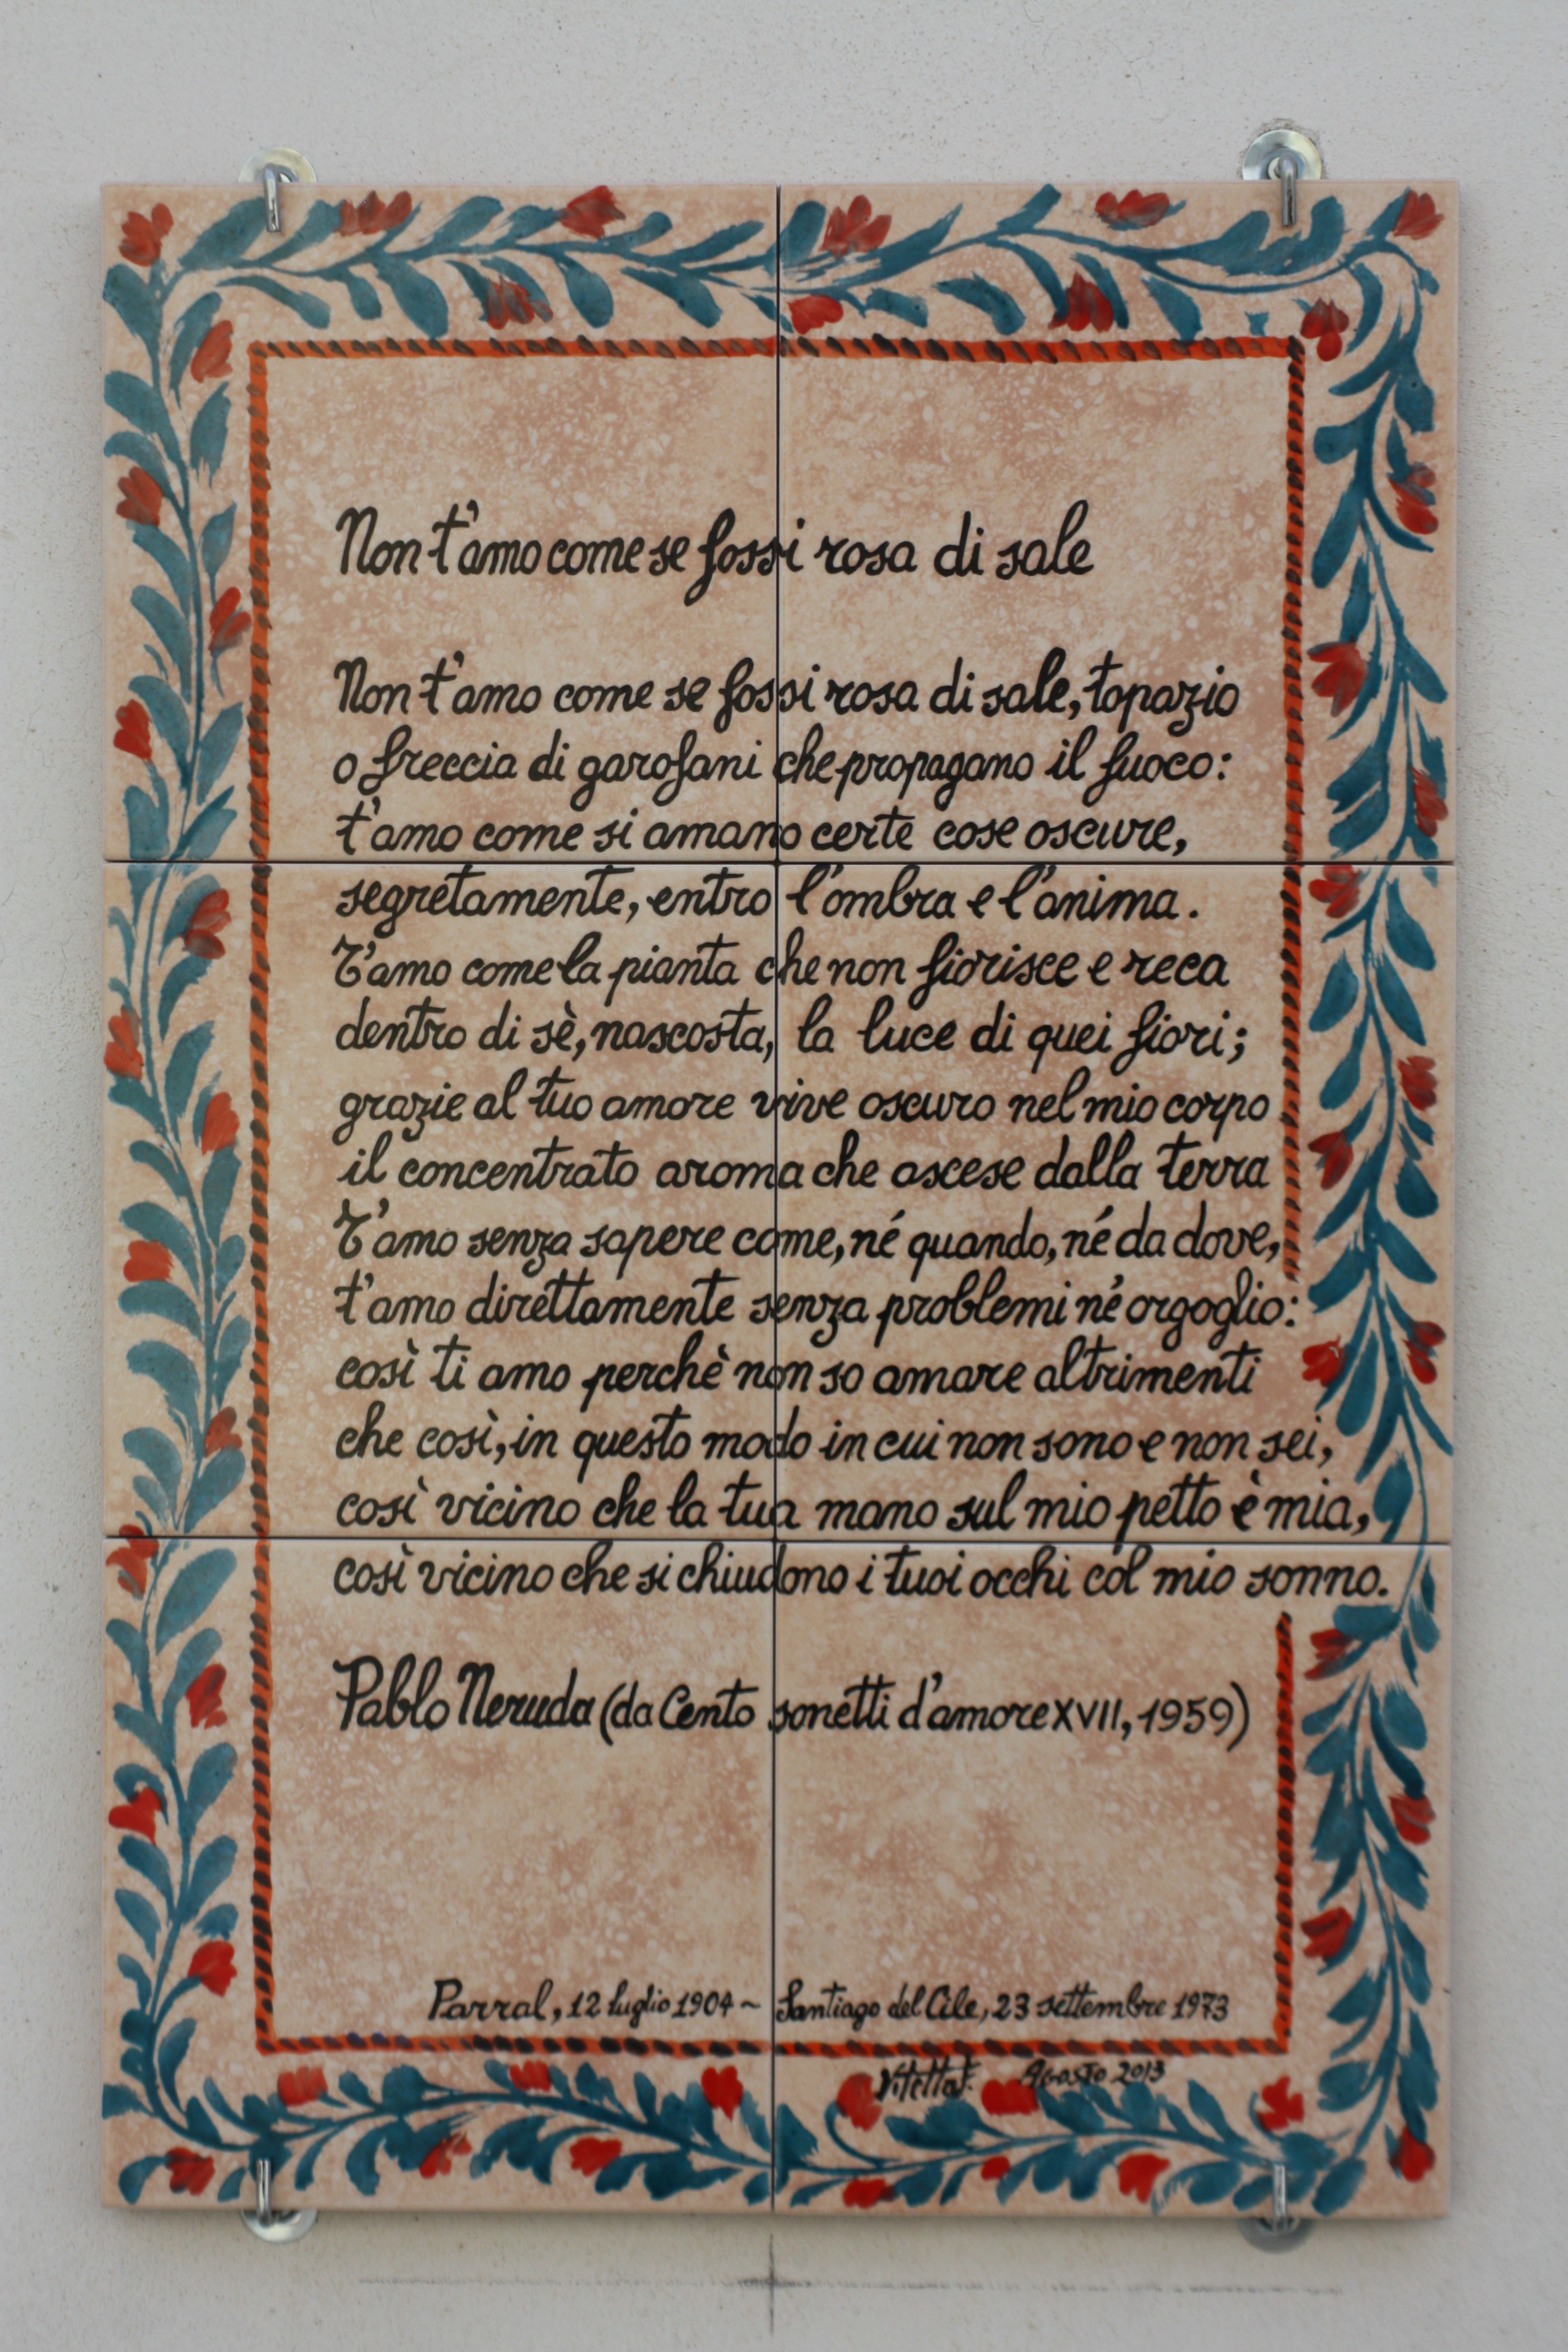 Non t'amo come se fossi rosa di sale
Non t'amo come se fossi rosa di sale, topazio
o freccia di garofani che propagano il fuoco:
t'amo come si amano certe cose oscure,
segretamente, entro l'ombra e l'anima.
T'amo come la pianta che non fiorisce e reca
dentro di sè, nascosta, la luce di quei fiori;
grazie al tuo amore vive oscuro nel mio corpo
il concentrato aroma che ascese dalla terra
T'amo senza sapere come, né quando, né da dove,
t'amo direttamente senza problemi né orgoglio:
così ti amo perchè non so amare altrimenti
che così, in questo modo in cui non sono e non sei,
così vicino che la tua mano sul mio petto è mia,
così vicino che si chiudono i tuoi occhi col mio sonno.
Pablo Neruda (da Cento sonetti d'amore XVII, 1959)
Parral, 12 luglio 1904 ~ Santiago del Cile, 23 settembre 1973
Vitetta F. Agosto 2013